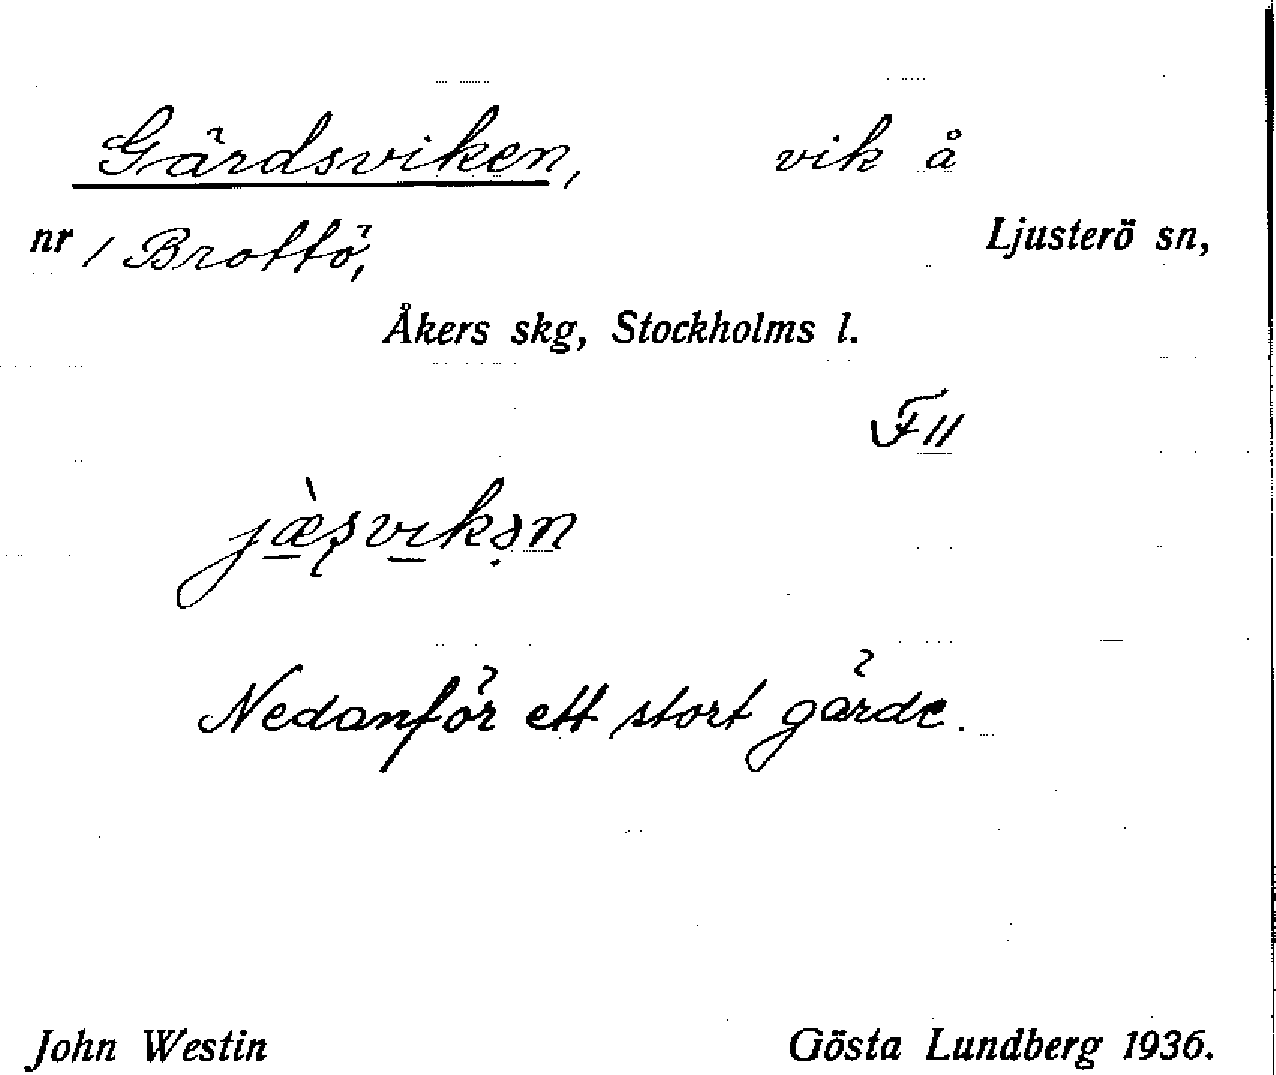 Gärdsviken, vik å
nr 1 Brottö, Ljusterö sn,
Åkers skg, Stockholms l.
F 11
Nedanför ett stort gärde.
John Westin Gösta Lundberg 1936.